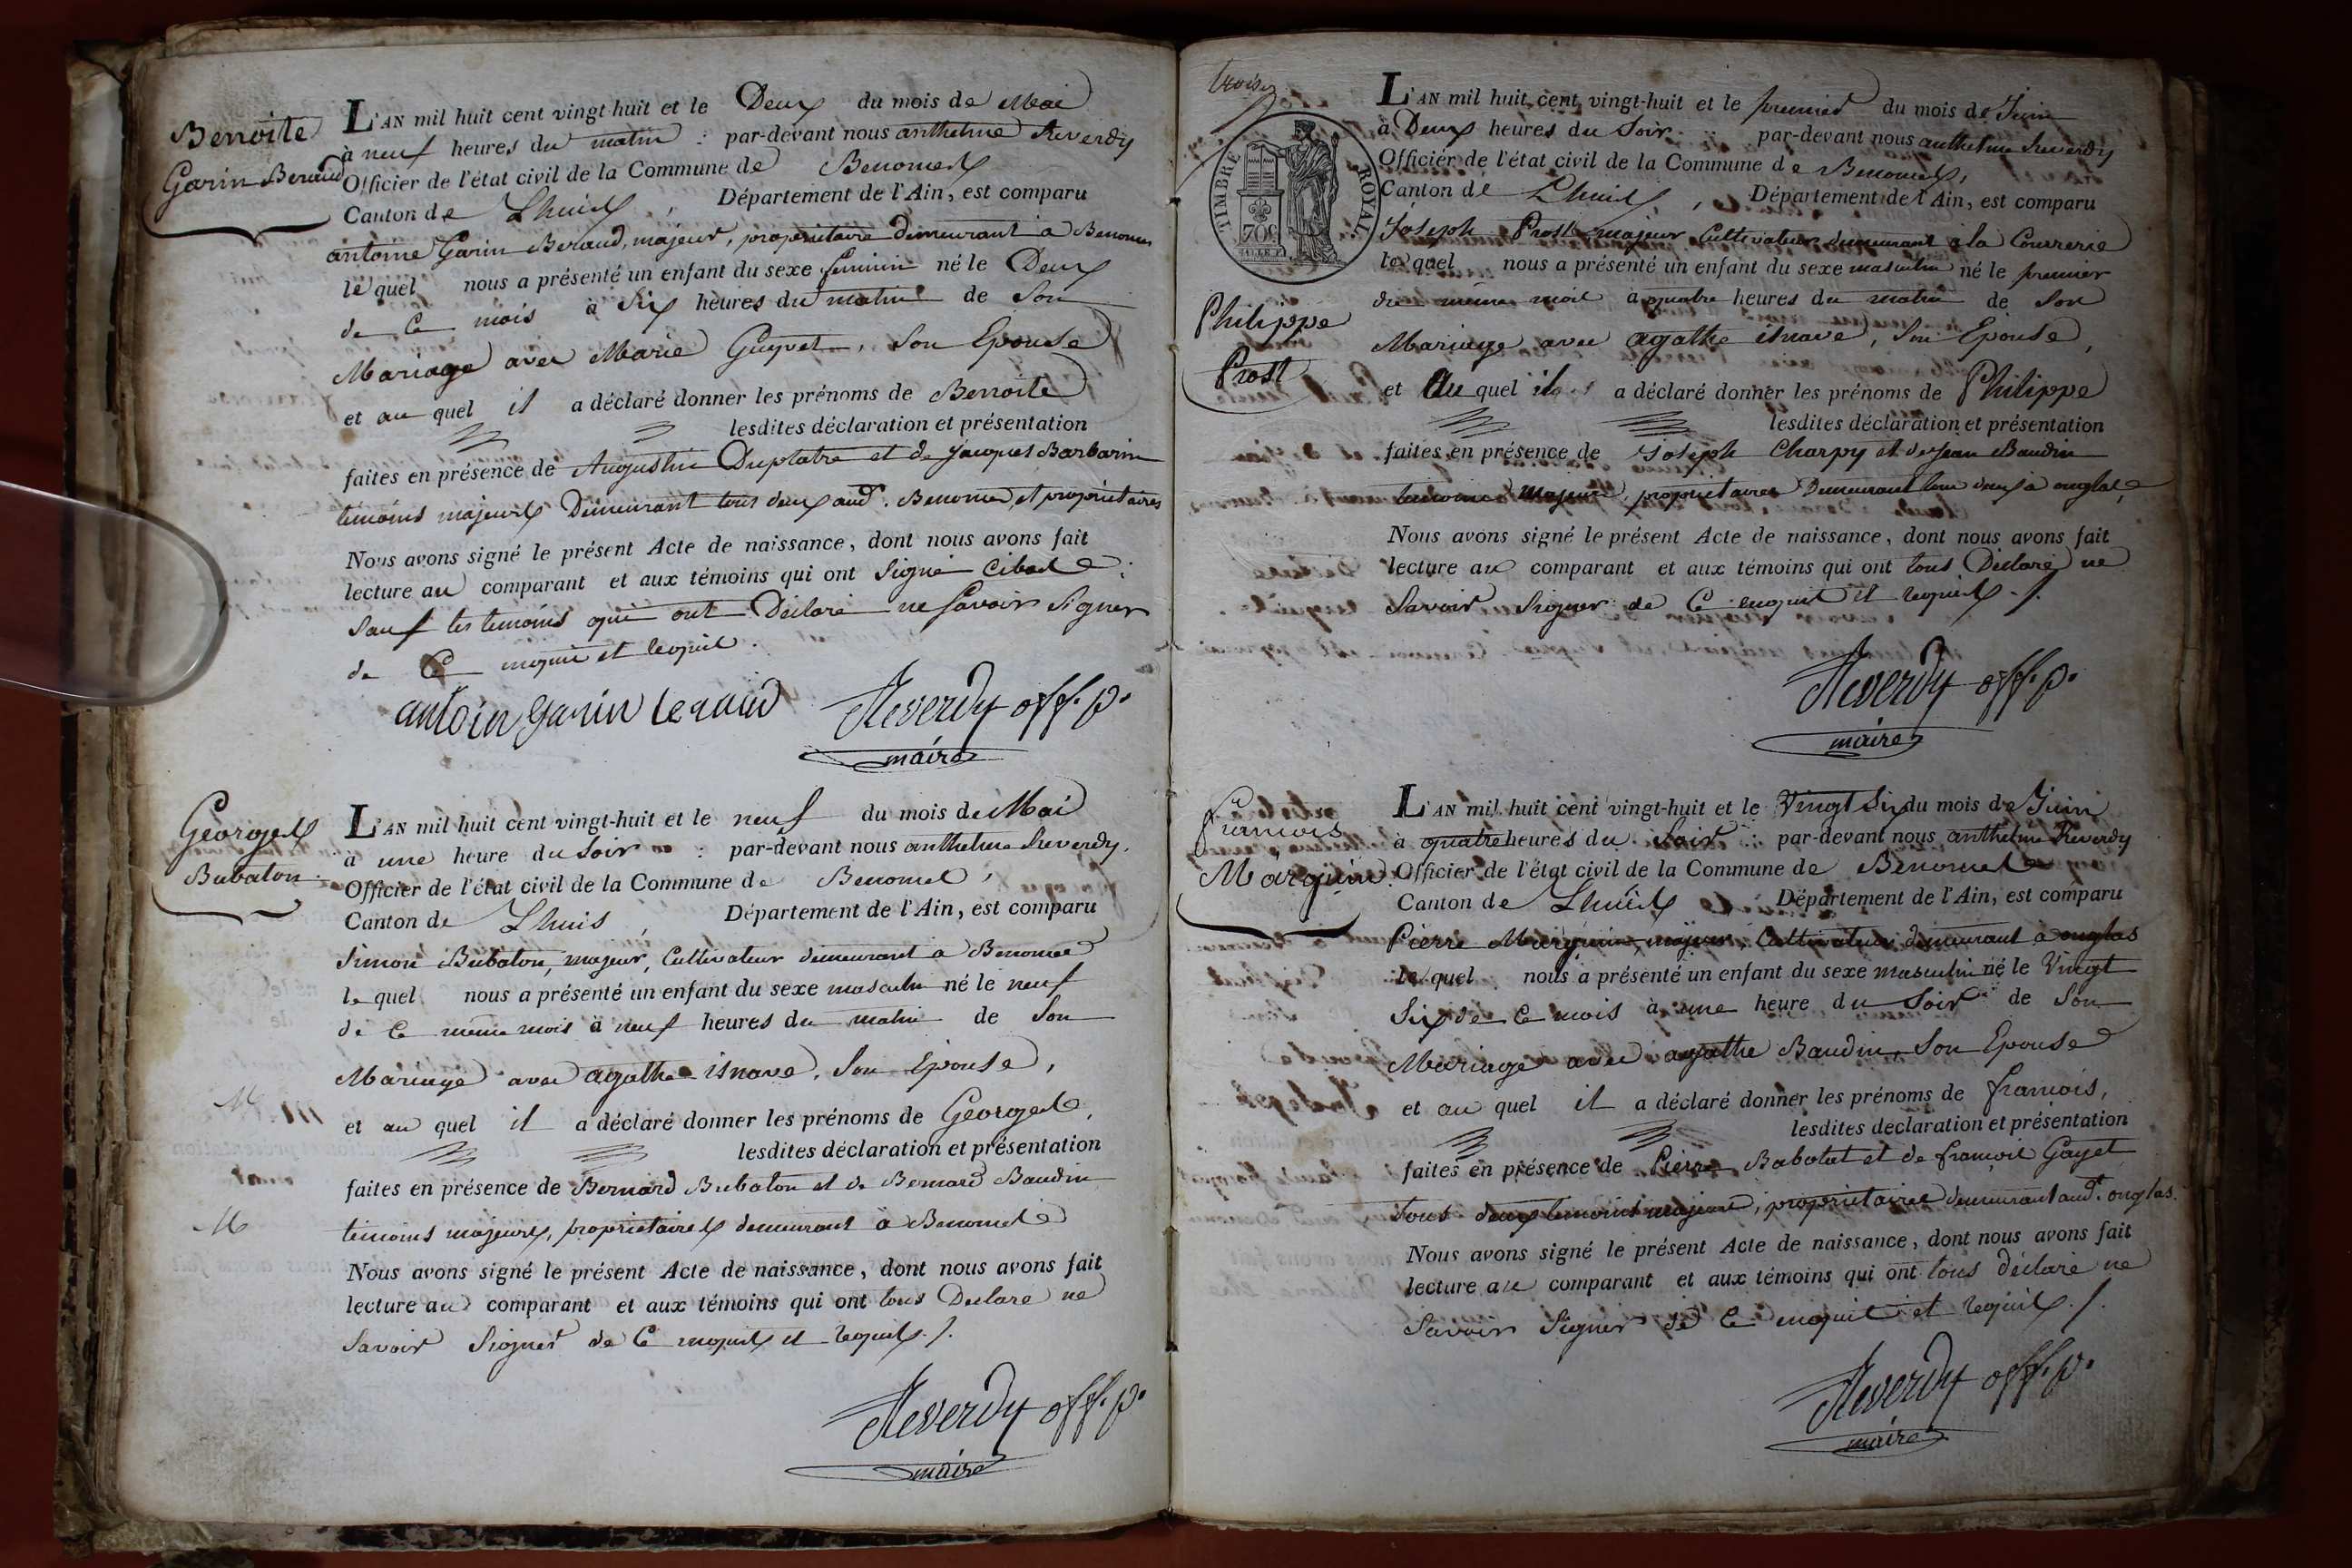 Benoite
Garin Beraud
L'AN mil huit cent vingt-huit et le Deux du mois de Mai
à neuf heures du matin : par-devant nous anthelme Reverdy
Officier de l'état civil de la Commune de Benonces
Canton de Lhuis, Département de l'Ain, est comparu
antoine Garin Beraud, majeur, propriétaire demeurant à Benonces
le quel nous a présenté un enfant du sexe feminin né le Deux
de Ce mois à Six heures du matin de Son
Mariage avec Marie Guyvet, Son Epouse
et au quel il a déclaré donner les prénoms de Benoite
lesdites déclaration et présentation
faites en présence de Augustin Duplatre et de Jacques Barbarin
témoins majeurs Demeurant tous deux aud. Benonces, et propriétaires
Nous avons signé le présent Acte de naissance, dont nous avons fait
lecture au comparant et aux témoins qui ont Signé
Sauf les temoins qui ont Déclaré ne Savoir Signer
de Ce enquis et requis.
antoin garin beraud Reverdy off. p.
maire
Georges
Bubaton.
L'AN mil huit cent vingt-huit et le neuf du mois de Mai
à une heure du Soir : par-devant nous anthelme Reverdy.
Officier de l'état civil de la Commune de Benonces,
Canton de Lhuis, Département de l'Ain, est comparu
Simon Bubaton, majeur, Cultivateur demeurant a Benonces
le quel nous a présenté un enfant du sexe masculin né le neuf
de Ce même mois à neuf heures du matin de Son
Mariage avec agathe isnave, Son Epouse,
et au quel il a déclaré donner les prénoms de Georges,
lesdites déclaration et présentation
faites en présence de Bernard Bubaton et de Bernard Baudin
témoins majeurs, propriétaires demeurant à Benonces
Nous avons signé le présent Acte de naissance, dont nous avons fait
lecture au comparant et aux témoins qui ont tous Declaré ne
Savoir Signer de Ce enquis et requis ./.
Reverdy off. p.
maire
trois
TIMBRE ROYAL
70C
Philippe
Prost
L'AN mil huit cent vingt-huit et le premier du mois de Juin
à Deux heures du Soir par-devant nous anthelme Reverdy
Officier de l'état civil de la Commune de Benonces,
Canton de Lhuis, Département de l'Ain, est comparu
Joseph Prost majeur Cultivateur demeurant à la Courrerie
le quel nous a présenté un enfant du sexe masculin né le premier
du même mois à quatre heures du matin de Son
Mariage avec agathe isnave, Son Epouse,
et Au quel il a déclaré donner les prénoms de Philippe
lesdites déclaration et présentation
faites en présence de Joseph Charpy et de Jean Baudin
temoins Majeurs, propriétaires Demeurant tous deux à onglas,
Nous avons signé le présent Acte de naissance, dont nous avons fait
lecture au comparant et aux témoins qui ont tous Déclaré ne
Savoir Signer de Ce enquis et requis ./.
Reverdy off. p.
maire
francois
Marguin.
L'AN mil huit cent vingt-huit et le Vingt Six du mois de Juin
à quatre heures du Soir : par-devant nous anthelme Reverdy
Officier de l'état civil de la Commune de Benonces
Canton de Lhuis Département de l'Ain, est comparu
Pierre Marguin, majeur, Cultivateur demeurant à onglas
le quel nous a présenté un enfant du sexe masculin né le Vingt
Six de Ce mois à une heure du Soir de Son
Mariage avec agathe Baudin, Son Epouse
et au quel il a déclaré donner les prénoms de francois,
lesdites déclaration et présentation
faites en présence de Pierre Babolat et de françois Gayet
tous deux temoins majeurs, propriétaires demeurant aud. onglas.
Nous avons signé le présent Acte de naissance, dont nous avons fait
lecture au comparant et aux témoins qui ont tous déclaré ne
Savoir Signer de Ce enquis et requis ./.
Reverdy off. p.
maire